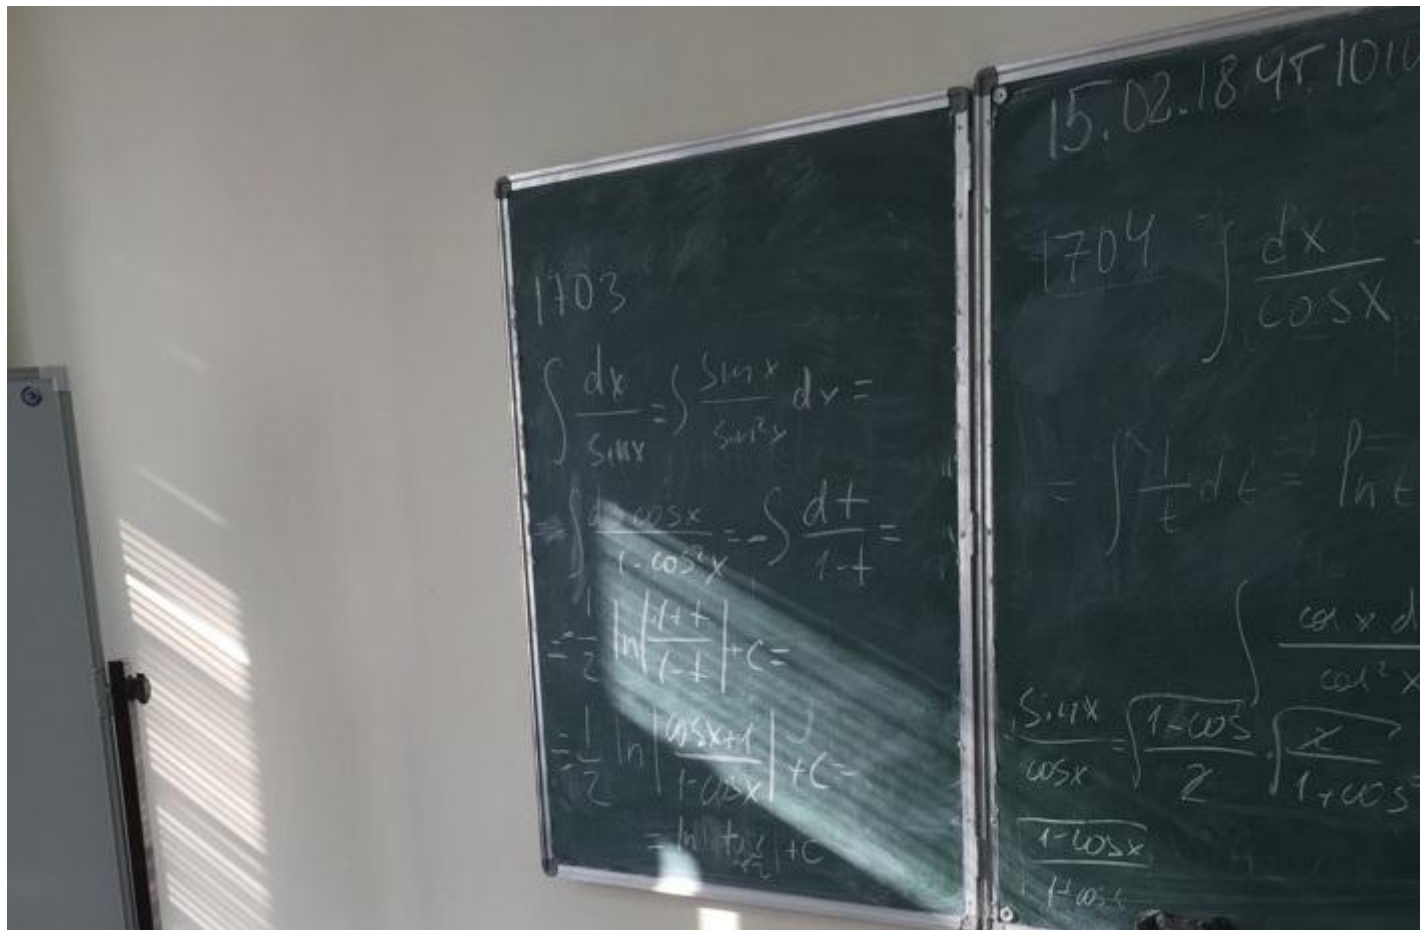 1703
∫ dx/sinx = ∫ sinx/sin²x dx =
= ∫ d cosx/1-cos²x = - ∫ dt/1-t =
= 1/2 ln|1+t/1-t| + C =
= 1/2 ln|cosx+1/1-cosx| + C =
= ln| tg x/2 | + C
15.02.18 чт. 1010
1704 ∫ dx/cosx
= ∫ 1/t dt = ln t
∫ cos x d/cos² x
sinx/cosx = √1-cos/2 · √2/1+cos
1-cosx/1+cos